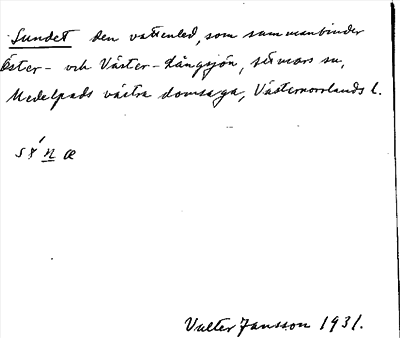 Sundet den vattenled, som sammanbinder
Öster- och Väster-Långsjön, Stöde sn,
Medelpads västra domsaga, Västernorrlands l.
Valter Jansson 1931.